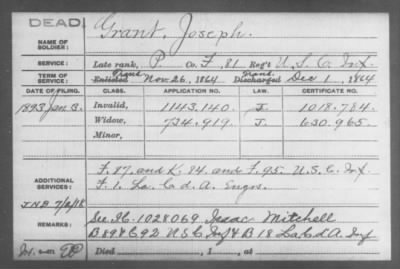 DEAD
NAME OF SOLDIER: Grant, Joseph.
SERVICE: Late rank, P Co. F, 81 Reg't U.S.C. Inf.
TERM OF SERVICE: Trans. Enlisted Nov. 26, 1864 Trans. Discharged Dec 1, 1864
DATE OF FILING. CLASS. APPLICATION NO. LAW. CERTIFICATE NO.
1893 Jan 3. Invalid, 1143.140. J. 1018.784.
Widow, 734.919. J. 630.965.
Minor,
ADDITIONAL SERVICES: F. 87. and K. 84. and F. 95. U.S.C. Inf.
F. 1. La. C. d. A. Engrs.
JNB 7/8/18
REMARKS: See IC. 1028069 Isaac Mitchell
B 89 & C 92 U S C Inf & B 18 La C d A Inf
Died , at